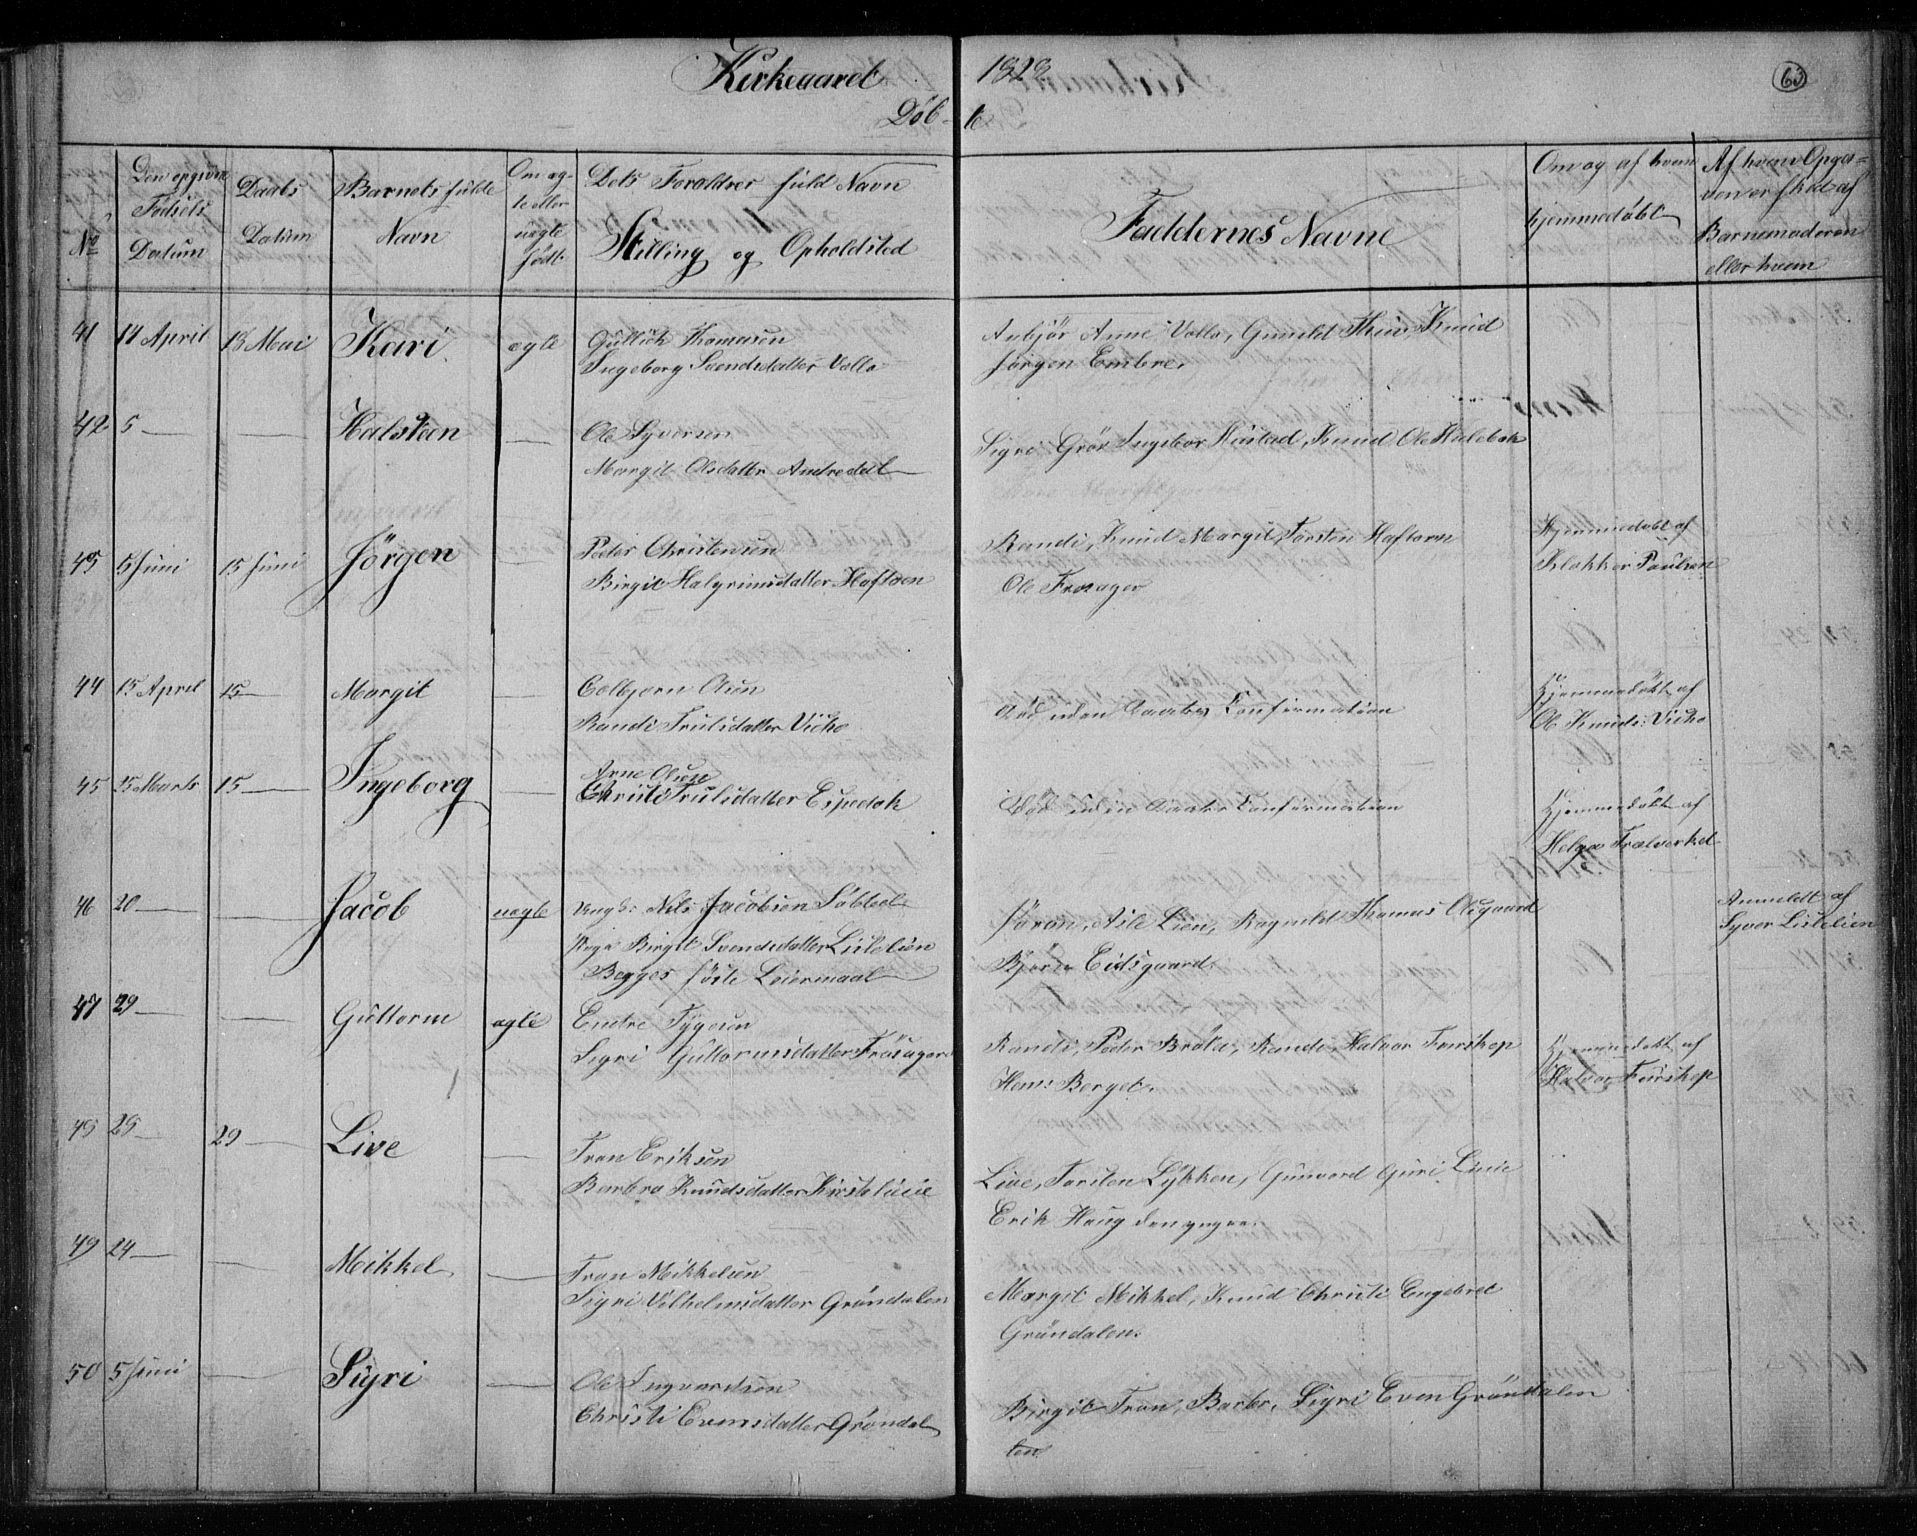 Kirkegaard 1828 63
Döb- te
No
Den opgivne Födsels Datum
Daabs Datum
Barnets fulde Navn
Om ægte eller uægte födt
Dets Forældres fuld Navn Stilling og Opholdsted
Faddernes Navne
Om og af hvem hjemmedöbt
Af hvem Opgaven er skeed af Barnemoderen eller hvem
41 14 April 18 Mai Kari ægte Gullich Thomesen
Ingeborg Svendsdatter Volla
Anbjör Anne Volla, Gunild Knud
Jörgen Embre.
42 5 — — Halsteen — Ole Syversen
Margit Olsdatter Andredal
Sigri Grös Ingebor Knud Ole
43 5 Juni 15 Juni Jörgen — Peder Christensen
Birgit Halgrimsdatter Haftoen
Randi, Knud Margit, Torsten Haftorn
Ole Frøsager
Hjemmedöbt af
Klokker Paulsen
44 15 April 15 — Margit — Colbjorn Olsen
Randi Trulsdatter Vicho
Död uden Daabs Confirmation
Hjemmedöbt af
Ole Knuds: Vicho
45 25 Marts 15 — Ingeborg — Arne Olsen
Christi Trulsdatter Espedok
Död uden Daabs Confirmation
Hjemmedöbt af
Helge Trælverkel
46 20 — — Jacob uægte Ungk: Nels Jacobsen
Pige Birgit Svendsdatter Lislelien
Begges förte Leiermaal
Jöran, Asle Lien, Ragnild Thomas Olsgaard
Björn Eidsgaard.
Anmeldt af
Syver Lislelien
47 29 — — Guttorm ægte Endre Tygesen
Sigri Guttormsdatter Fräsager
Randi, Peder Bröta, Randi, Halvor Turskep
Hans Berget.
Hjemmedöbt af
Halvor Turskep
48 25 — 29 — Live — Tron Eriksen
Barbra Knudsdatter
Live, Torsten Lÿkken, Gunvord Guri
Erik Haug den yngre.
49 24 — — Mikkel — Tron Mikkelsen
Sigri Vilhelmsdatter Gröndalen
Margit Mikkel, Knud Christi Engebret
Gröndalen.
50 5 Juni — Sigri — Ole Ingvardsen
Christi Evensdatter Gröndal
Birgit Tron, Barbr, Sigri Even Gröndalen
ten